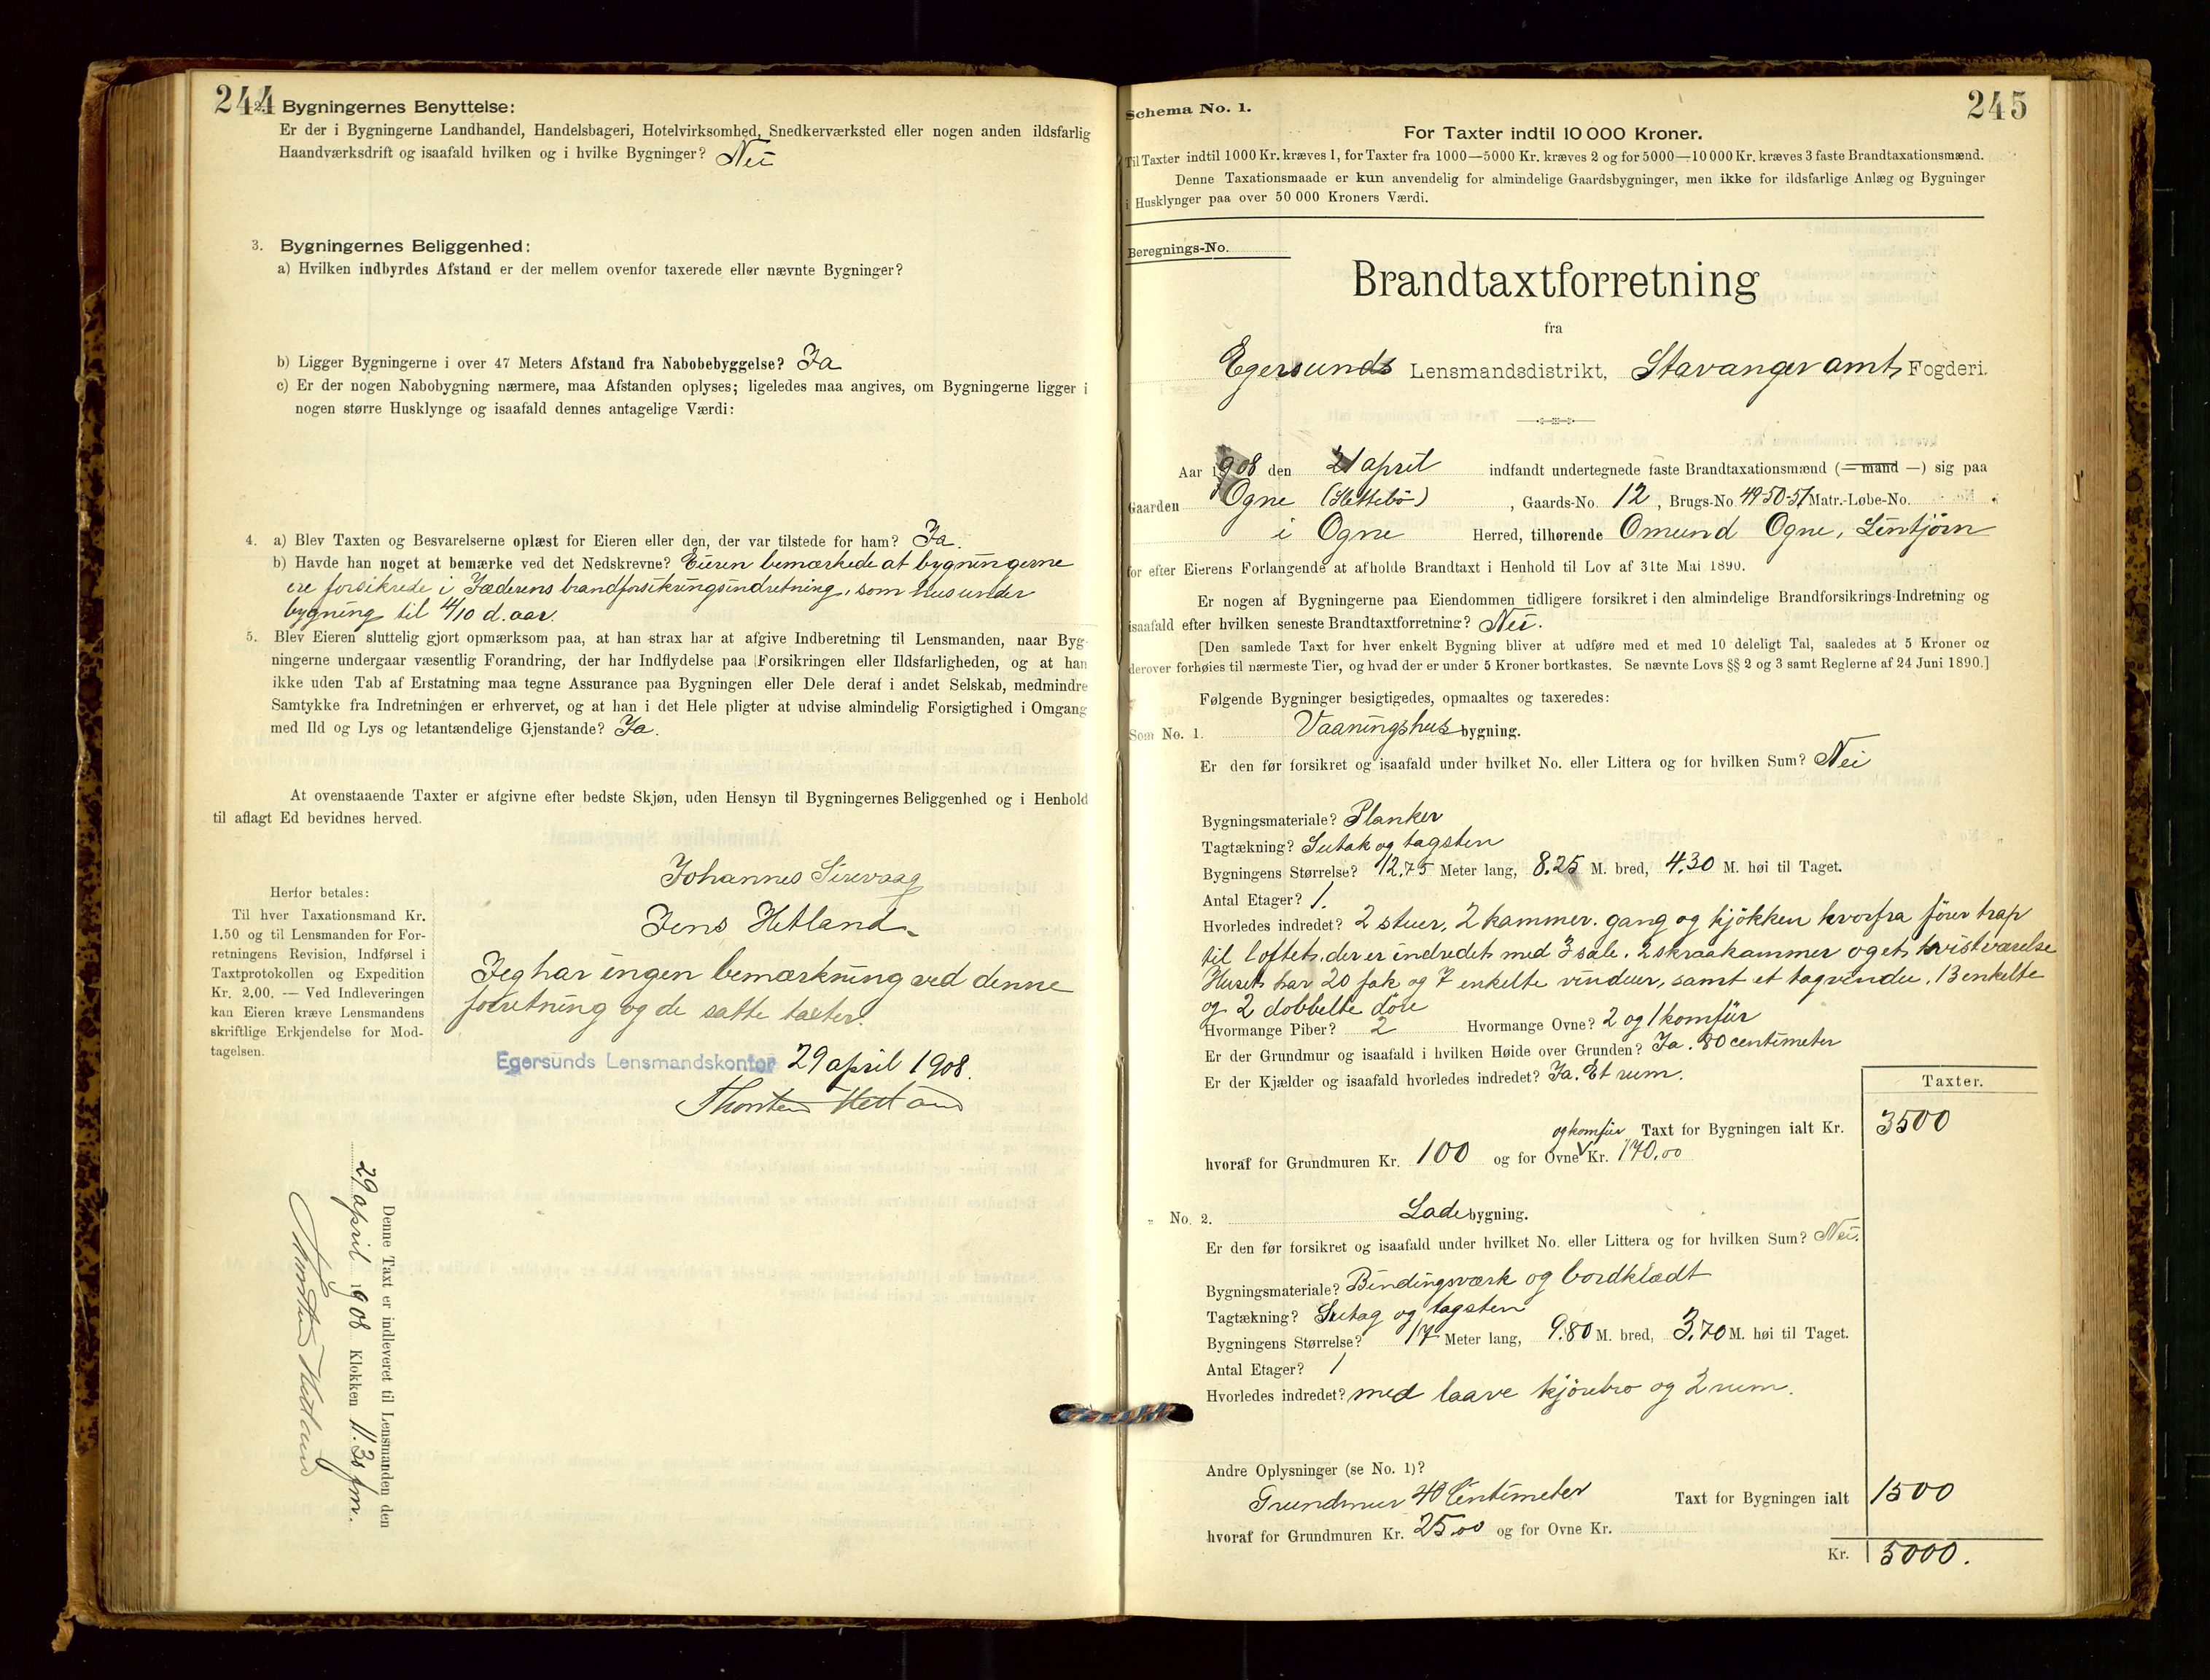 244
2. Bygningernes Benyttelse:
Er der i Bygningerne Landhandel, Handelsbageri, Hotelvirksomhed, Snedkerværksted eller nogen anden ildsfarlig
Haandværksdrift og isaafald hvilken og i hvilke Bygninger? Nei
3. Bygningernes Beliggenhed:
a) Hvilken indbyrdes Afstand er der mellem ovenfor taxerede eller nævnte Bygninger?
b) Ligger Bygningerne i over 47 Meters Afstand fra Nabobebyggelse? Ja
c) Er der nogen Nabobygning nærmere, maa Afstanden oplyses; ligeledes maa angives, om Bygningerne ligger i
nogen større Husklynge og isaafald dennes antagelige Værdi:
4. a) Blev Taxten og Besvarelserne oplæst for Eieren eller den, der var tilstede for ham? Ja.
b) Havde han noget at bemærke ved det Nedskrevne? Eieren bemærkede at bygningerne
ere forsikrede i Jæderens brandforsikringsindretning, som hus under
bygning til 4/10 d. aar.
5. Blev Eieren sluttelig gjort opmærksom paa, at han strax har at afgive Indberetning til Lensmanden, naar Byg-
ningerne undergaar væsentlig Forandring, der har Indflydelse paa Forsikringen eller Ildsfarligheden, og at han
ikke uden Tab af Erstatning maa tegne Assurance paa Bygningen eller Dele deraf i andet Selskab, medmindre
Samtykke fra Indretningen er erhvervet, og at han i det Hele pligter at udvise almindelig Forsigtighed i Omgang
med Ild og Lys og letantændelige Gjenstande? Ja.
At ovenstaaende Taxter er afgivne efter bedste Skjøn, uden Hensyn til Bygningernes Beliggenhed og i Henhold
til aflagt Ed bevidnes herved.
Johannes Sirevaag
Jens Hetland
Jeg har ingen bemærkning ved denne
forretning og de satte taxter.
Egersunds Lensmandskontor 29 april 1908.
Thorsten Hetland
Herfor betales:
Til hver Taxationsmand Kr.
1.50 og til Lensmanden for For-
retningens Revision, Indførsel i
Taxtprotokollen og Expedition
Kr. 2.00. — Ved Indleveringen
kan Eieren kræve Lensmandens
skriftlige Erkjendelse for Mod-
tagelsen.
Denne Taxt er indleveret til Lensmanden den
29 april 1908 Klokken 11.30 fm.
Thorsten Hetland
245
Schema No. 1.
For Taxter indtil 10 000 Kroner.
Til Taxter indtil 1000 Kr. kræves 1, for Taxter fra 1000—5000 Kr. kræves 2 og for 5000—10 000 Kr. kræves 3 faste Brandtaxationsmænd.
Denne Taxationsmaade er kun anvendelig for almindelige Gaardsbygninger, men ikke for ildsfarlige Anlæg og Bygninger
i Husklynger paa over 50 000 Kroners Værdi.
Beregnings-No.
Brandtaxtforretning
fra
Egersunds Lensmandsdistrikt, Stavanger amts Fogderi.
Aar 1908 den 21 april indfandt undertegnede faste Brandtaxationsmænd (— mand —) sig paa
Gaarden Ogne (Slettebø), Gaards-No. 12, Brugs-No. 49-50-51 Matr.-Løbe-No.
i Ogne Herred, tilhørende Omund Ogne, Lintjørn
for efter Eierens Forlangende at afholde Brandtaxt i Henhold til Lov af 31te Mai 1890.
Er nogen af Bygningerne paa Eiendommen tidligere forsikret i den almindelige Brandforsikrings-Indretning og
isaafald efter hvilken seneste Brandtaxtforretning? Nei.
[Den samlede Taxt for hver enkelt Bygning bliver at udføre med et med 10 deleligt Tal, saaledes at 5 Kroner og
derover forhøies til nærmeste Tier, og hvad der er under 5 Kroner bortkastes. Se nævnte Lovs §§ 2 og 3 samt Reglerne af 24 Juni 1890.]
Følgende Bygninger besigtigedes, opmaaltes og taxeredes:
Som No. 1. Vaaningshus bygning.
Er den før forsikret og isaafald under hvilket No. eller Littera og for hvilken Sum? Nei
Bygningsmateriale? Planker
Tagtækning? Sutak og tagsten
Bygningens Størrelse? 12,75 Meter lang, 8.25 M. bred, 4.30 M. høi til Taget.
Antal Etager? 1.
Hvorledes indredet? 2 stuer, 2 kammer, gang og kjøkken hvorfra fører trap
til loftet, der er indredet med 3 sale, 2 skraakammer og et kvistværelse
Huset har 20 fak og 7 enkelte vinduer, samt et tagvindu, 13 enkelte
og 2 dobbelte døre
Hvormange Piber? 2 Hvormange Ovne? 2 og 1 komfür
Er der Grundmur og isaafald i hvilken Høide over Grunden? Ja. 80 centimeter
Er der Kjælder og isaafald hvorledes indredet? Ja. Et rum.
Taxter.
og komfür Taxt for Bygningen ialt Kr. 3500
hvoraf for Grundmuren Kr. 100 og for Ovne Kr. 170.00
" No. 2. Lade bygning.
Er den før forsikret og isaafald under hvilket No. eller Littera og for hvilken Sum? Nei.
Bygningsmateriale? Bindingsværk og bordklædt
Tagtækning? Sutag og tagsten
Bygningens Størrelse? 17 Meter lang, 9.80 M. bred, 3.70 M. høi til Taget.
Antal Etager? 1
Hvorledes indredet? med laave kjørebro og 2 rum.
Andre Oplysninger (se No. 1)?
Grundmur 40 Centimeter Taxt for Bygningen ialt 1500
hvoraf for Grundmuren Kr. 25.00 og for Ovne Kr.
Kr. 5000.